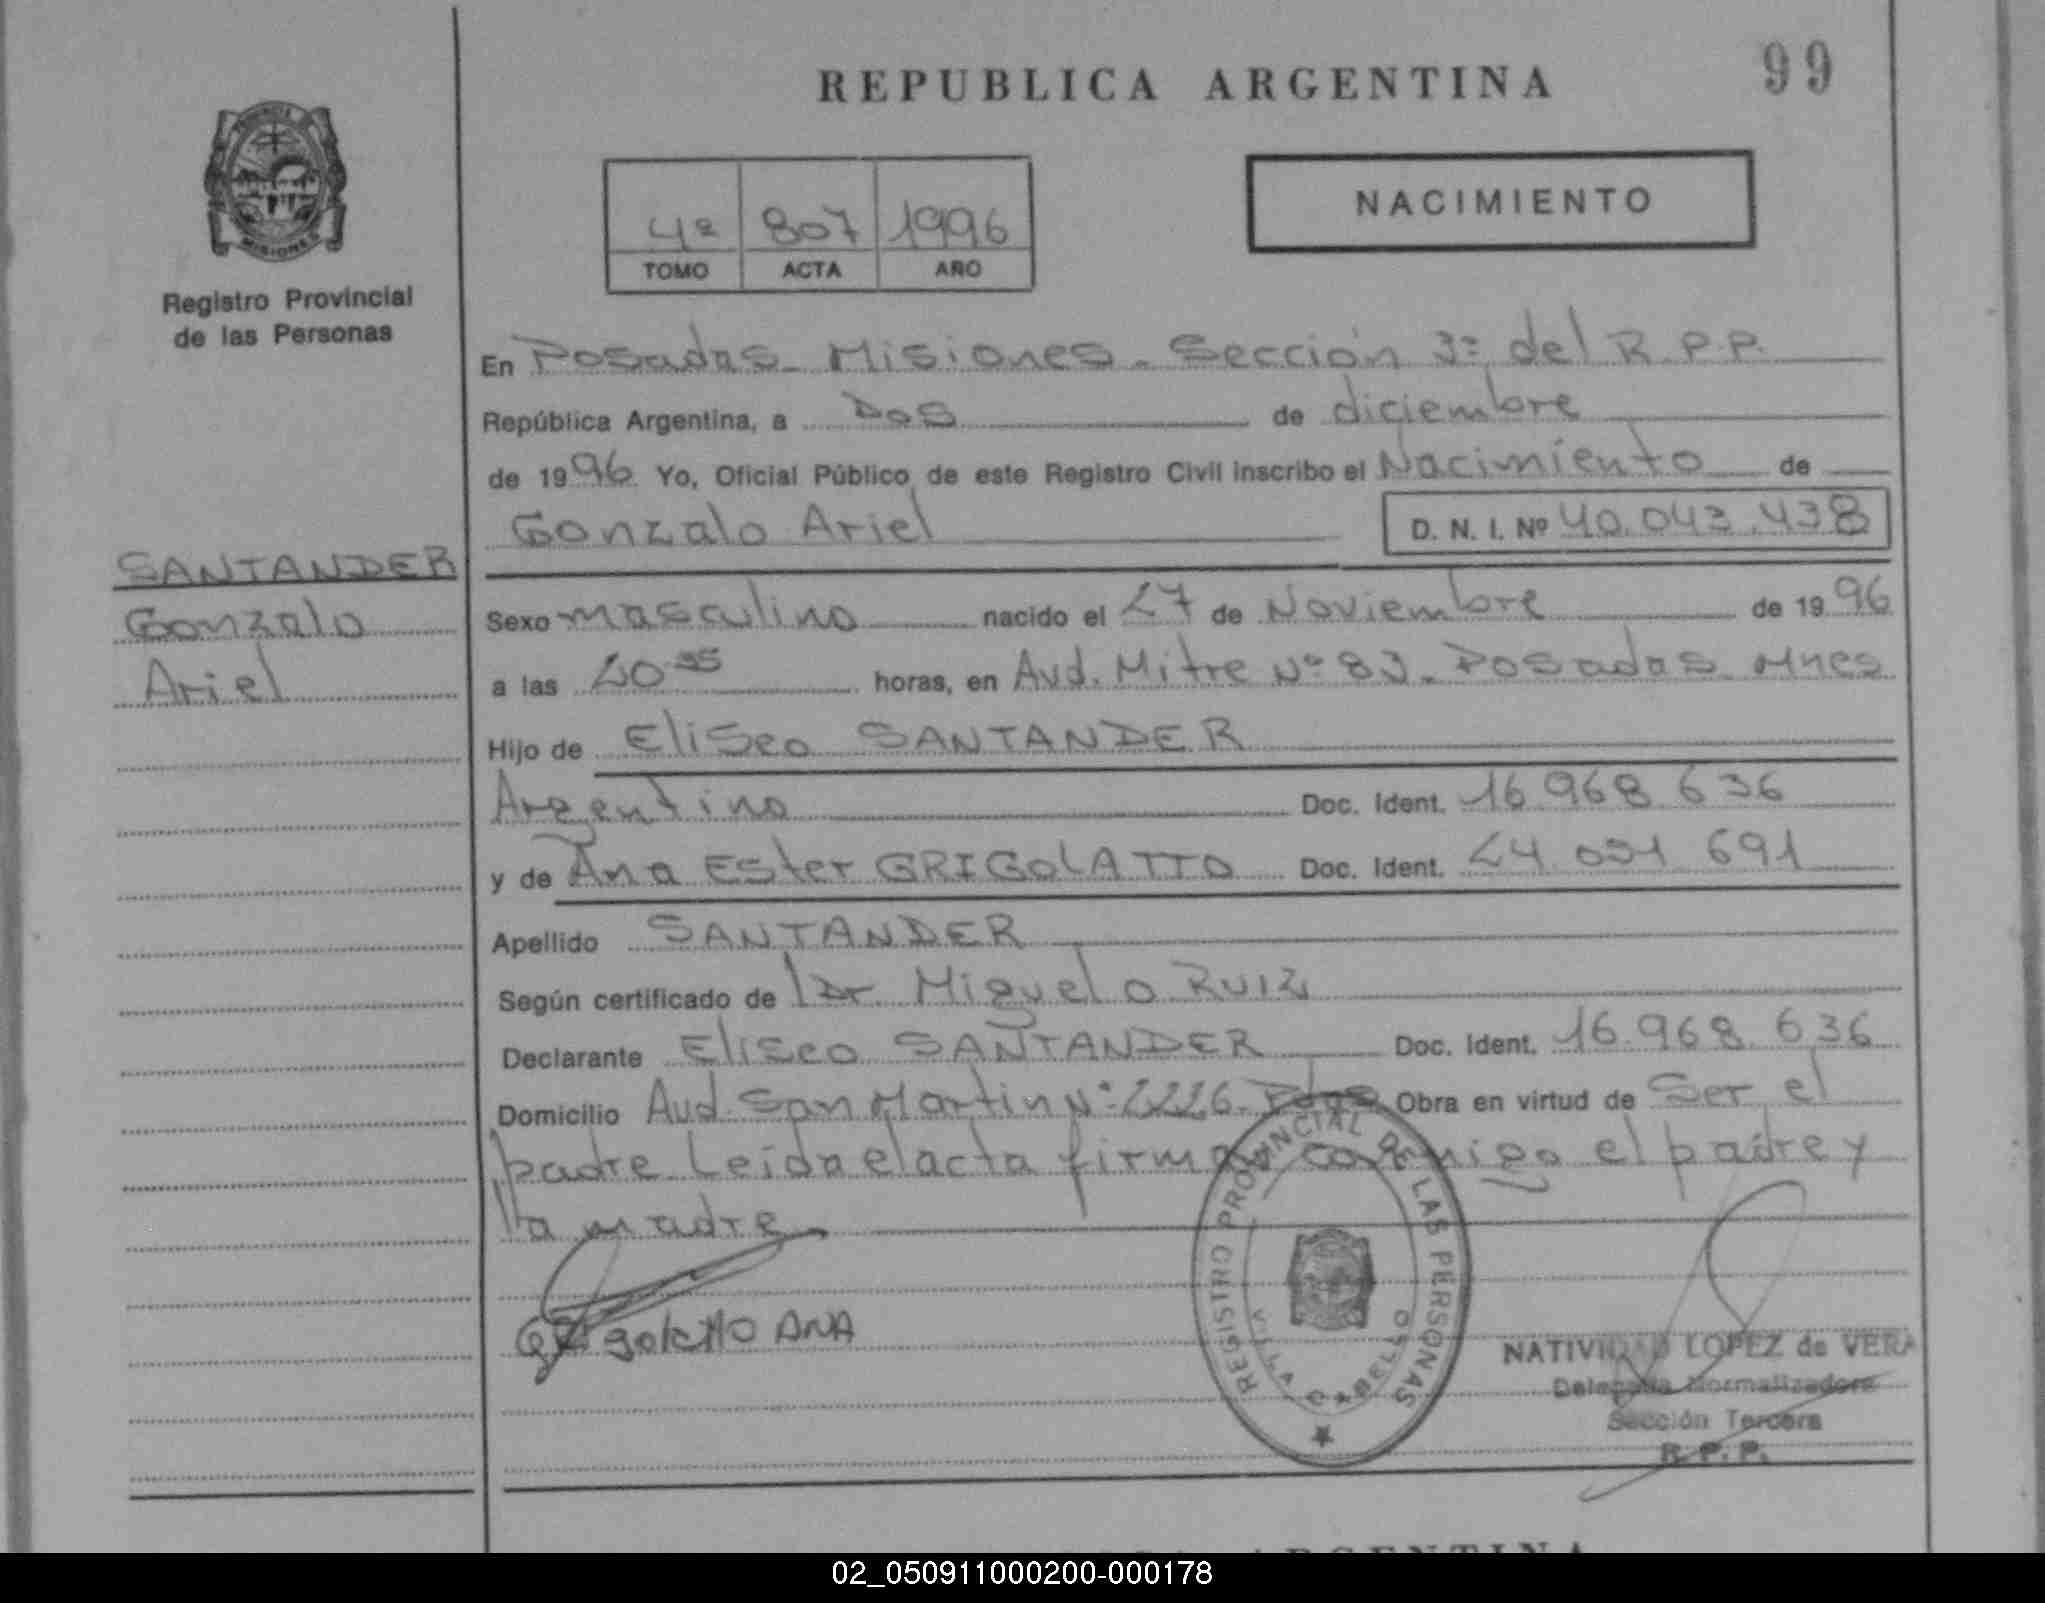 REPUBLICA ARGENTINA
99
NACIMIENTO
4º 807 1996
TOMO ACTA AÑO
PROVINCIA
MISIONES
Registro Provincial
de las Personas
En Posadas Misiones - Sección 3ª del R.P.P.
República Argentina, a Dos de diciembre
de 1996 Yo, Oficial Público de este Registro Civil inscribo el Nacimiento de
Gonzalo Ariel D. N. I. Nº 40.043.438
SANTANDER
Gonzalo
Ariel
Sexo masculino nacido el 27 de Noviembre de 1996
a las 20 35 horas, en Avd. Mitre Nº 83 - Posadas Mnes
Hijo de Eliseo SANTANDER
Argentino Doc. Ident. 16.968.636
y de Ana Ester GRIGOLATTO Doc. Ident. 24.091 691
Apellido SANTANDER
Según certificado de Dr Miguel O Ruiz
Declarante Eliseo SANTANDER Doc. Ident. 16.968.636
Domicilio Avd. San Martin Nº 2226. Pdas Obra en virtud de Ser el
padre Leida el acta firman conmigo el padre y
la madre
ANA
REGISTRO PROVINCIAL DE LAS PERSONAS
VILLA CABELLO
NATIVIDAD LOPEZ de VERA
Delegada Normalizadora
Sección Tercera
R.P.P.
ARGENTINA
02_050911000200-000178